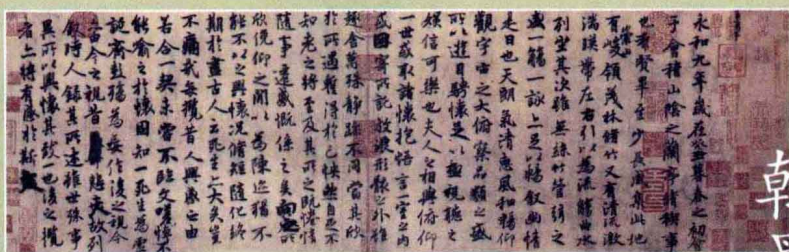 永和九年歲在癸丑暮春之初會
于會稽山陰之蘭亭脩稧事
也群賢畢至少長咸集此地
有崇山峻領茂林脩竹又有清流激
湍暎帶左右引以為流觴曲水
列坐其次雖無絲竹管弦之
盛一觴一詠亦足以暢叙幽情
是日也天朗氣清惠風和暢仰
觀宇宙之大俯察品類之盛
所以遊目騁懷足以極視聽之
娛信可樂也夫人之相與俯仰
一世或取諸懷抱悟言一室之內
或因寄所託放浪形骸之外雖
趣舍萬殊靜躁不同當其欣
於所遇暫得於己怏然自足不
知老之將至及其所之既惓情
隨事遷感慨係之矣向之所
欣俛仰之閒以為陳迹猶不
能不以之興懷況脩短隨化終
期於盡古人云死生亦大矣豈
不痛哉每攬昔人興感之由
若合一契未嘗不臨文嗟悼不
能喻之於懷固知一死生為虛
誕齊彭殤為妄作後之視今
亦由今之視昔悲夫故列
敘時人錄其所述雖世殊事
異所以興懷其致一也後之攬
者亦將有感於斯文